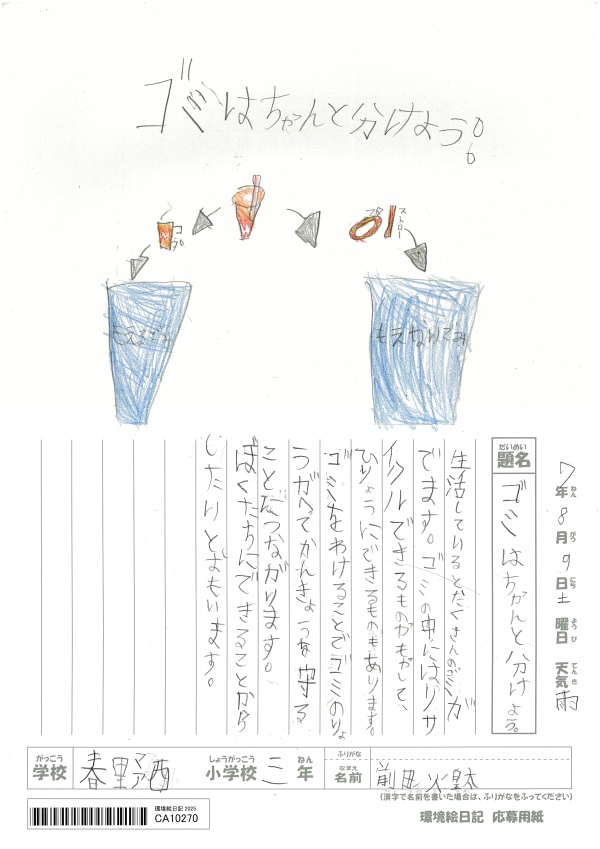 ゴミはちゃんと分けよう。
コップ
フタ
ストロー
もえるごみ
もえないごみ
7年8月9日土曜日 天気雨
ねん
がつ
にち
ようび
てんき
だいめい
題名
ゴミはちゃんと分けよう。
生活しているとたくさんのゴミが
でます。ゴミの中にはリサ
イクルできるものがもがして、
ひりょうにできるものもあります。
ゴミをわけることでゴミのりょ
うがへてかんきょうを守る
ことにつながります。
ぼくたちにできることから
したいとおもいます。
がっこう
学校
しょうがっこう
小学校 三年
ねん
ふりがな
なまえ
名前
(漢字で名前を書いた場合は、ふりがなをふってください)
環境絵日記 2025
CA10270
環境絵日記 応募用紙